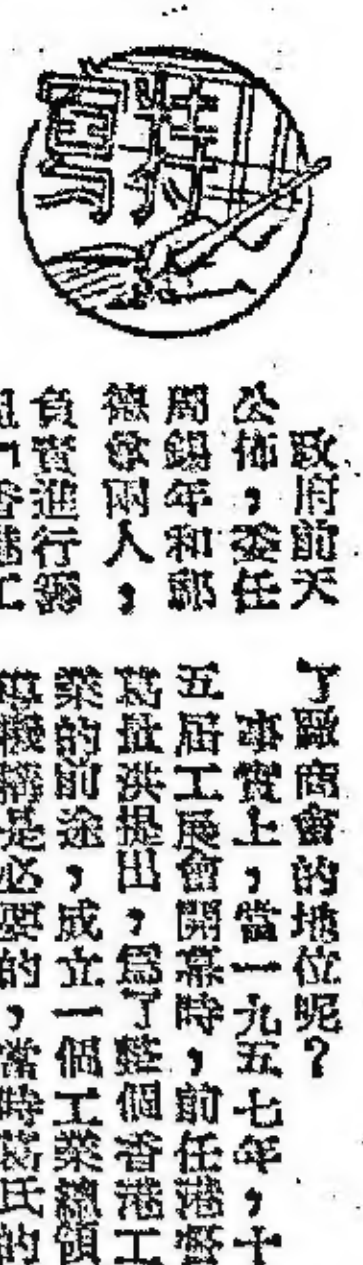 特寫
政府前天
公佈，委任
周錫年和鄧
德敏兩人，
負責進行籌
組「香港工
了廠商會的地位呢？
事實上，當一九五七年，十
五届工展會開幕時，前任港督
葛量洪提出，爲了整個香港工
業的前途，成立一個工業總領
導機構是必要的，當時葛氏的